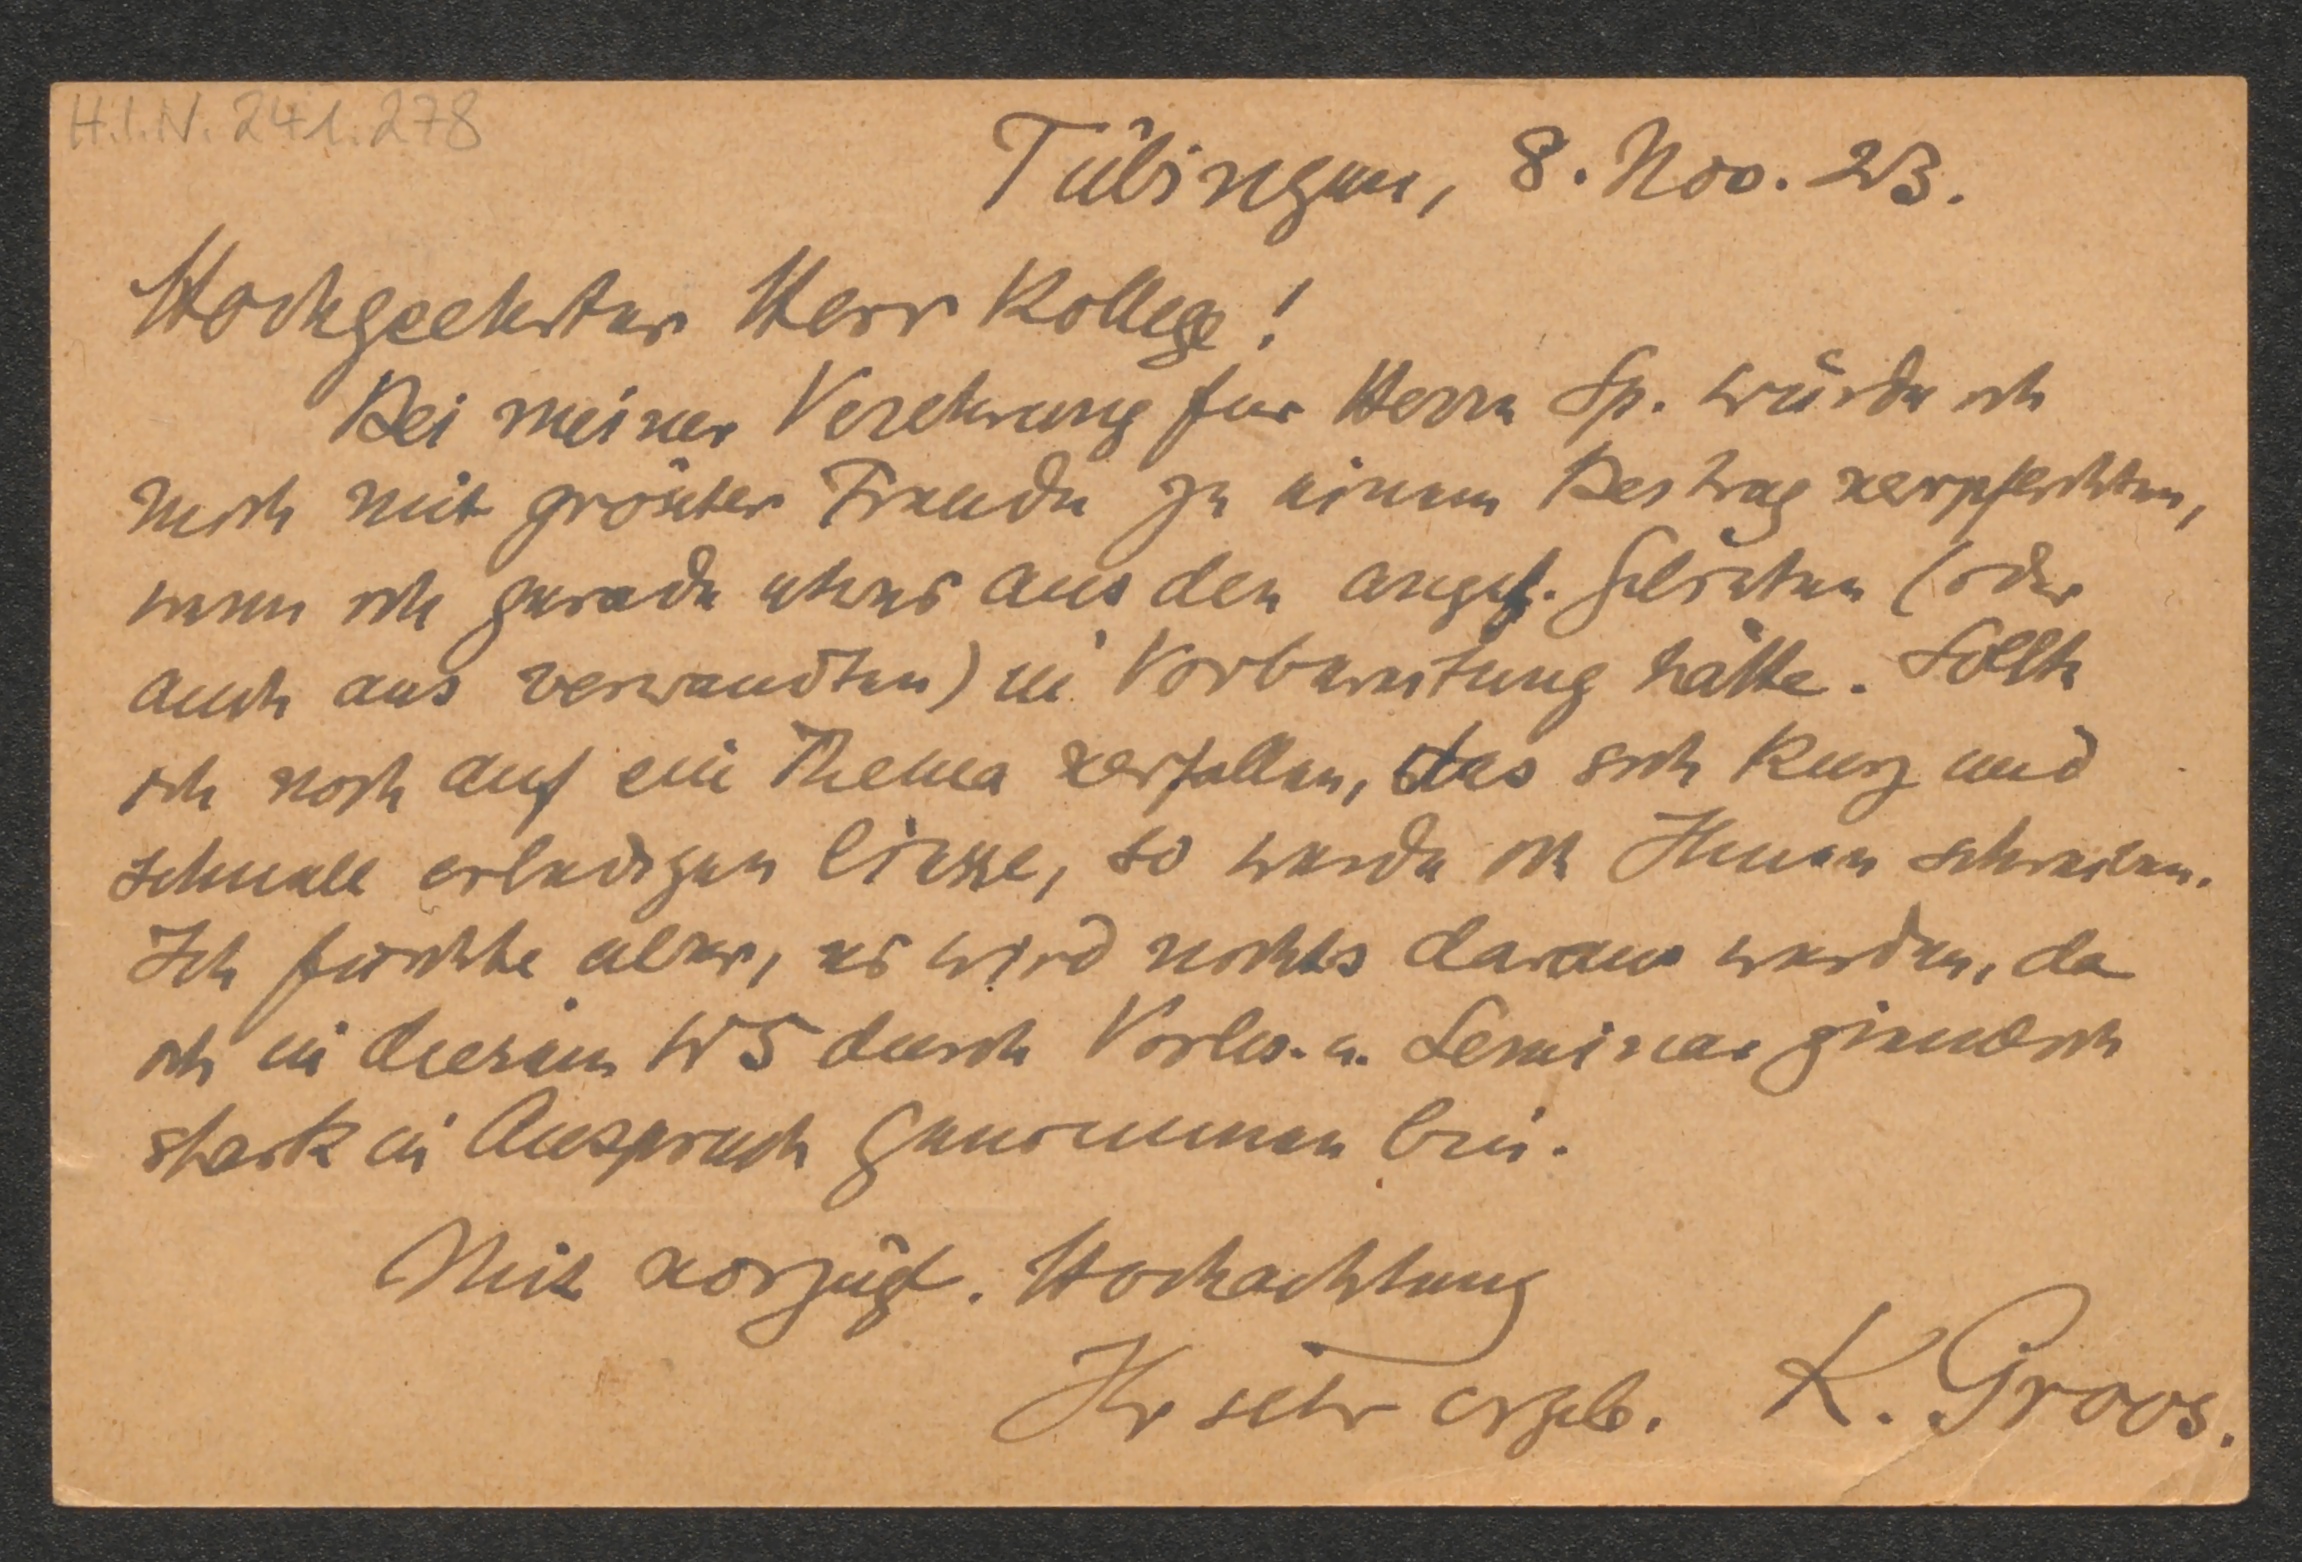 H.I.N. 241.278
Tübingen, 8. Nov. 23.
Hochgeehrter Herr Kollege!
Bei meiner Verehrung für Herrn Sp. würde ich
mich mit grösster Freude zu einem Beitrag verpflichten,
wenn ich gerade etwas aus den angef. Gebieten (oder
auch aus verwandten) in Vorbereitung hätte. Sollte
ich noch auf ein Thema verfallen, das sich kurz und
schnell erledigen liesse, so werde ich Ihnen schreiben.
Ich fürchte aber, es wird nichts daraus werden, da
ich in diesem WS durch Vorles. u. Seminar ziemlich
stark in Anspruch genommen bin.
Mit vorzügl. Hochachtung
Ihr sehr ergeb. K. Groos.